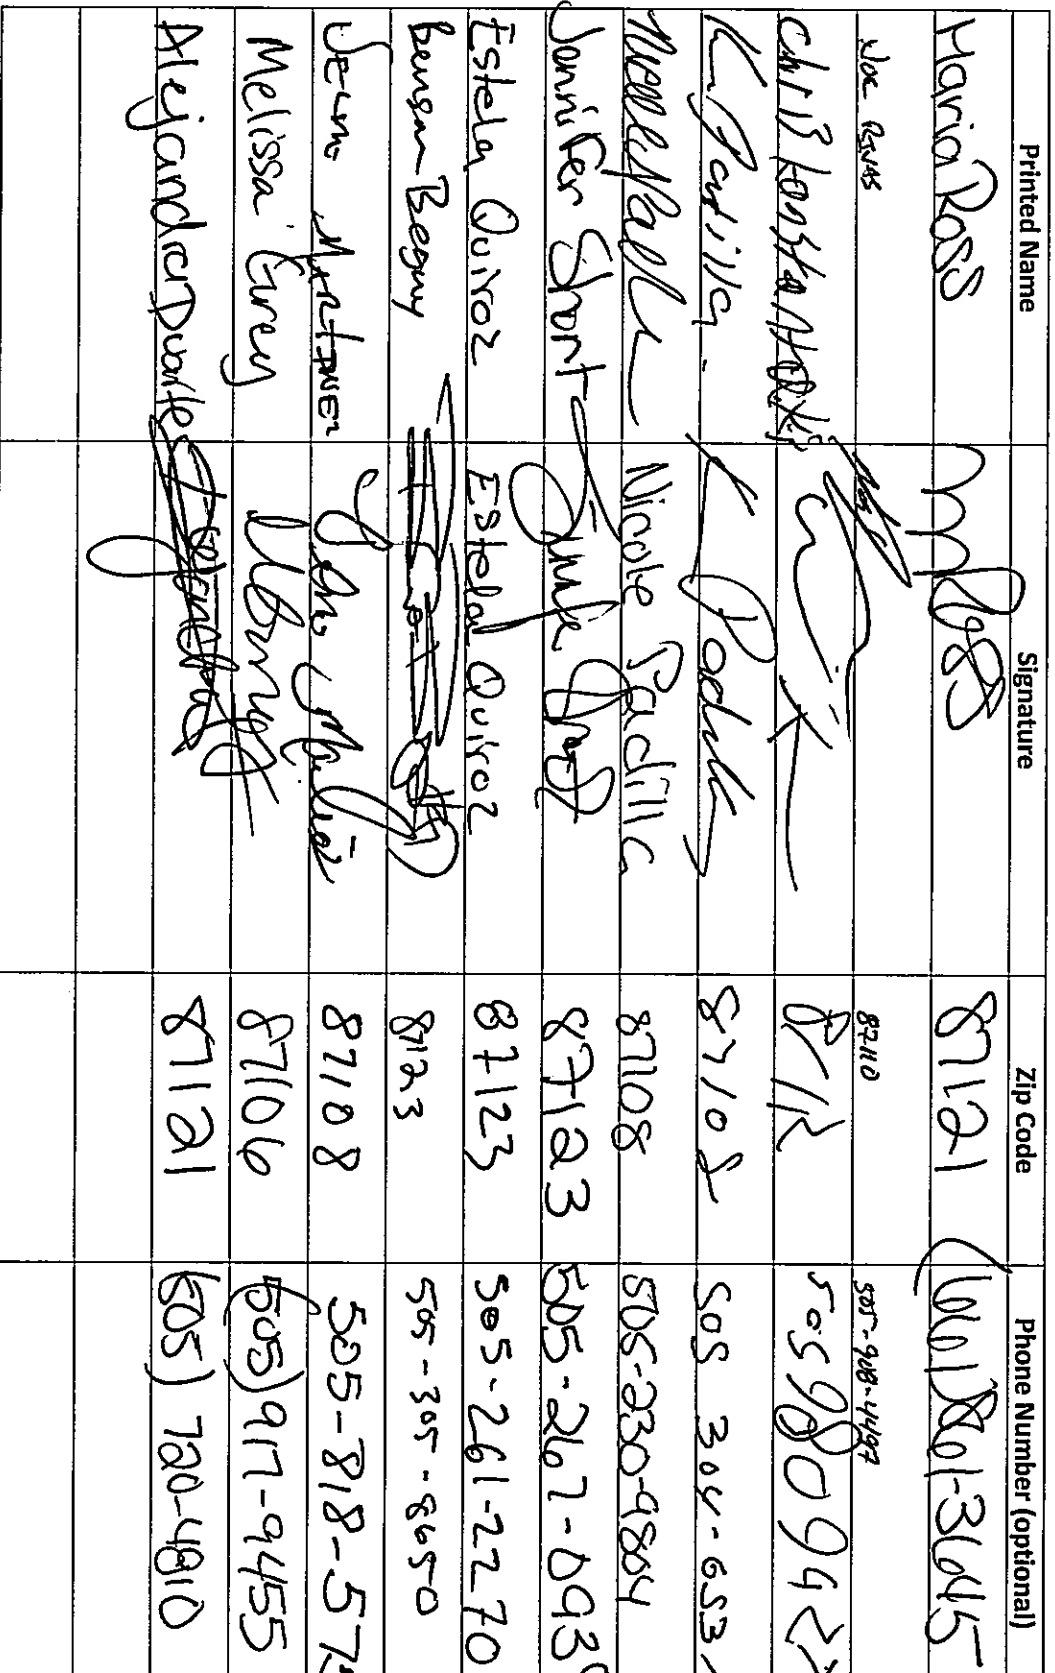 Printed Name Signature Zip Code Phone Number (optional)
Maria Ross 87121 (661)861-3645
Joe Rivas 87110 505-908-4497
Chris 505980942
K Padilla K Padilla 87108 505 304-653
Nicole Padilla 87108 505-230-9804
Jennifer Short 87123 505-267-093
Estela Quiroz Estela Quiroz 87123 505-261-2270
Benson Begay 87123 505-305-8650
Martinez 87108 505-818-57
Melissa 87106 (505)917-9455
Alejandra Duarte 87121 (505) 720-4810